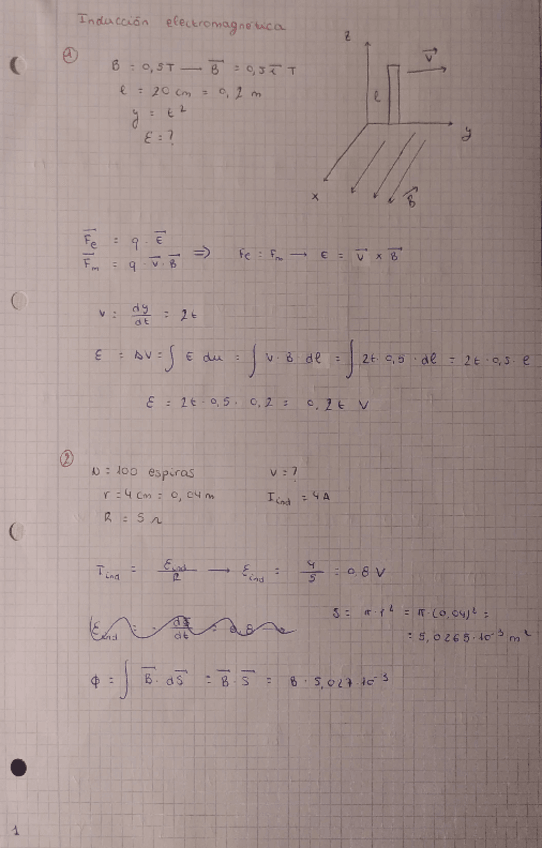 Inducción electromagnética
①
B = 0,5T — B⃗ = 0,5 i⃗ T
l = 20 cm = 0,2 m
y = t²
ε = ?
z
v⃗
l
y
x
B⃗
F⃗e = q · E⃗
F⃗m = q · v⃗ · B⃗ ⇒ Fe = Fm → E = v⃗ × B⃗
v = dy/dt = 2t
ε = ΔV = ∫ E du = ∫ v · B dl = ∫ 2t · 0,5 · dl = 2t · 0,5 · l
ε = 2t · 0,5 · 0,2 = 0,2t V
②
N = 100 espiras v = ?
r = 4 cm = 0,04 m I ind = 4A
R = 5 Ω
I ind = ε ind/R → ε ind = 4/5 = 0,8 V
S = π · r² = π · (0,04)² =
= 5,0265 · 10⁻³ m²
ϕ = ∫ B⃗ · dS⃗ = B⃗ · S⃗ = B · 5,027 · 10⁻³
1